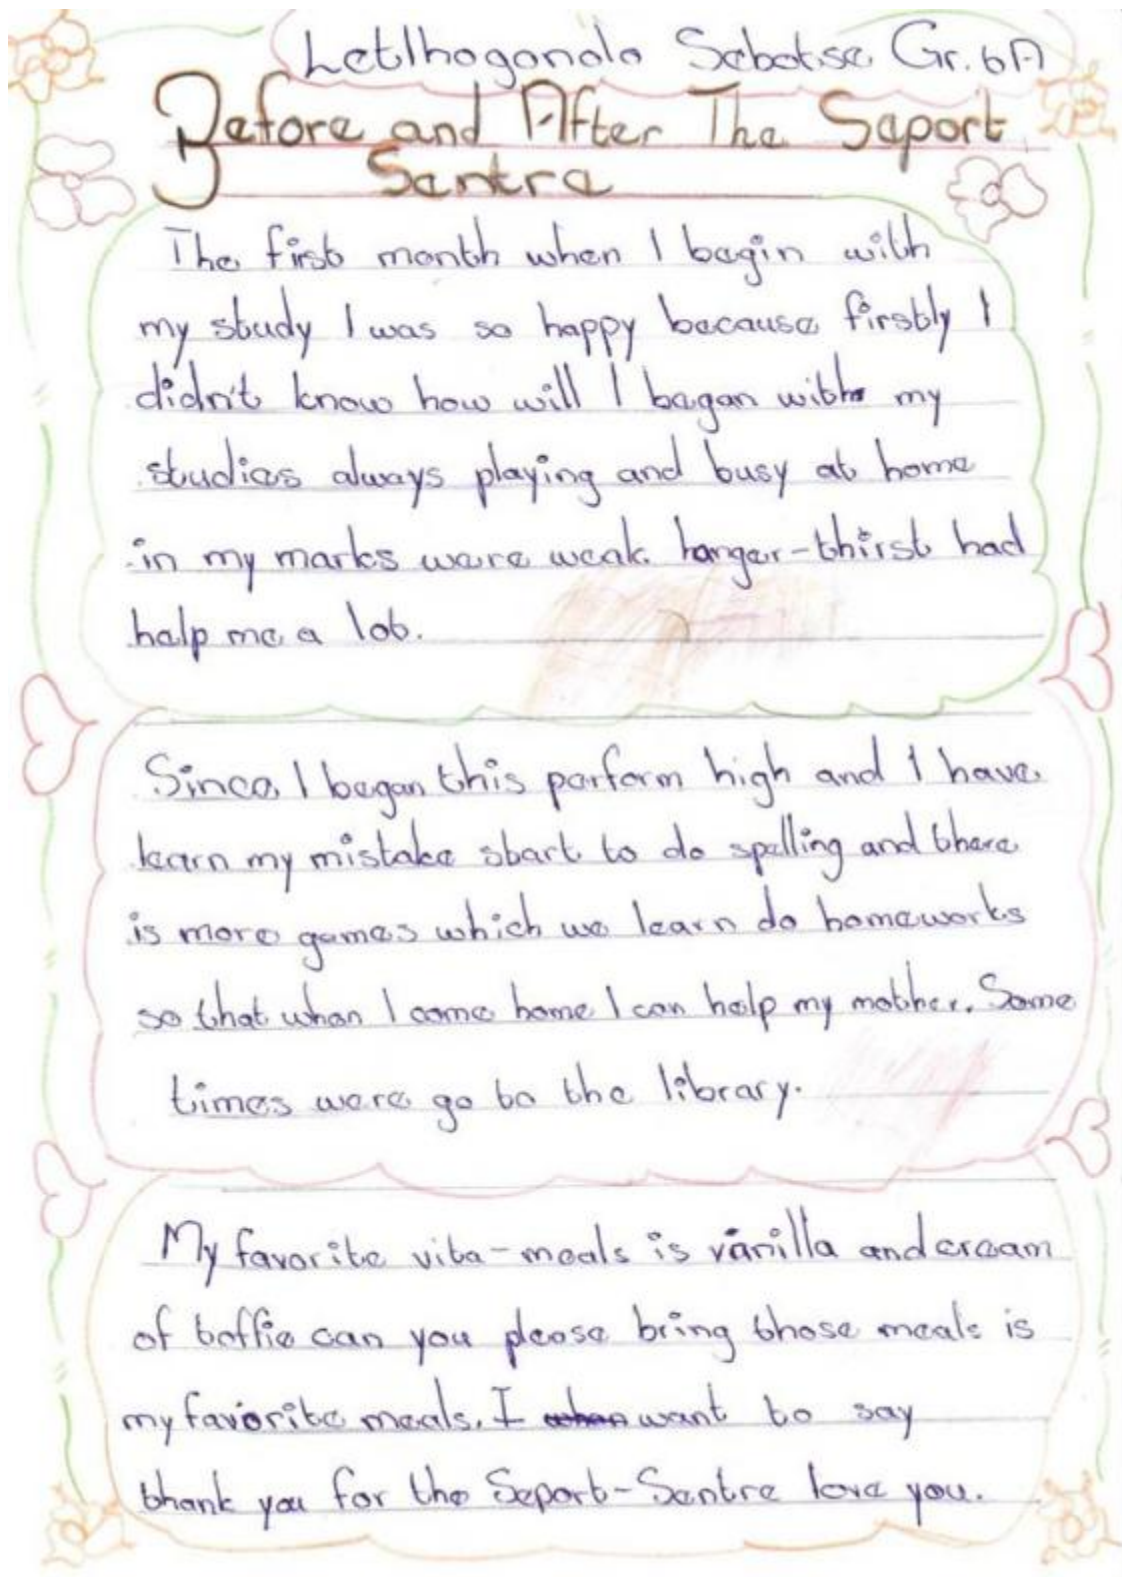 Letlhogonolo Sebotse Gr. 6A
Before and After The Seport
Sentre
The first month when I begin with
my study I was so happy because firstly I
didn't know how will I began with my
studies always playing and busy at home
in my marks were weak. hanger-thirst had
help me a lot.
Since I began this perform high and I have
learn my mistake start to do spelling and there
is more games which we learn do homeworks
so that when I come home I can help my mother. Some
times were go to the library.
My favorite vita-meals is vanilla and cream
of toffie can you please bring those meals is
my favorite meals. I when want to say
thank you for the Seport-Sentre love you.